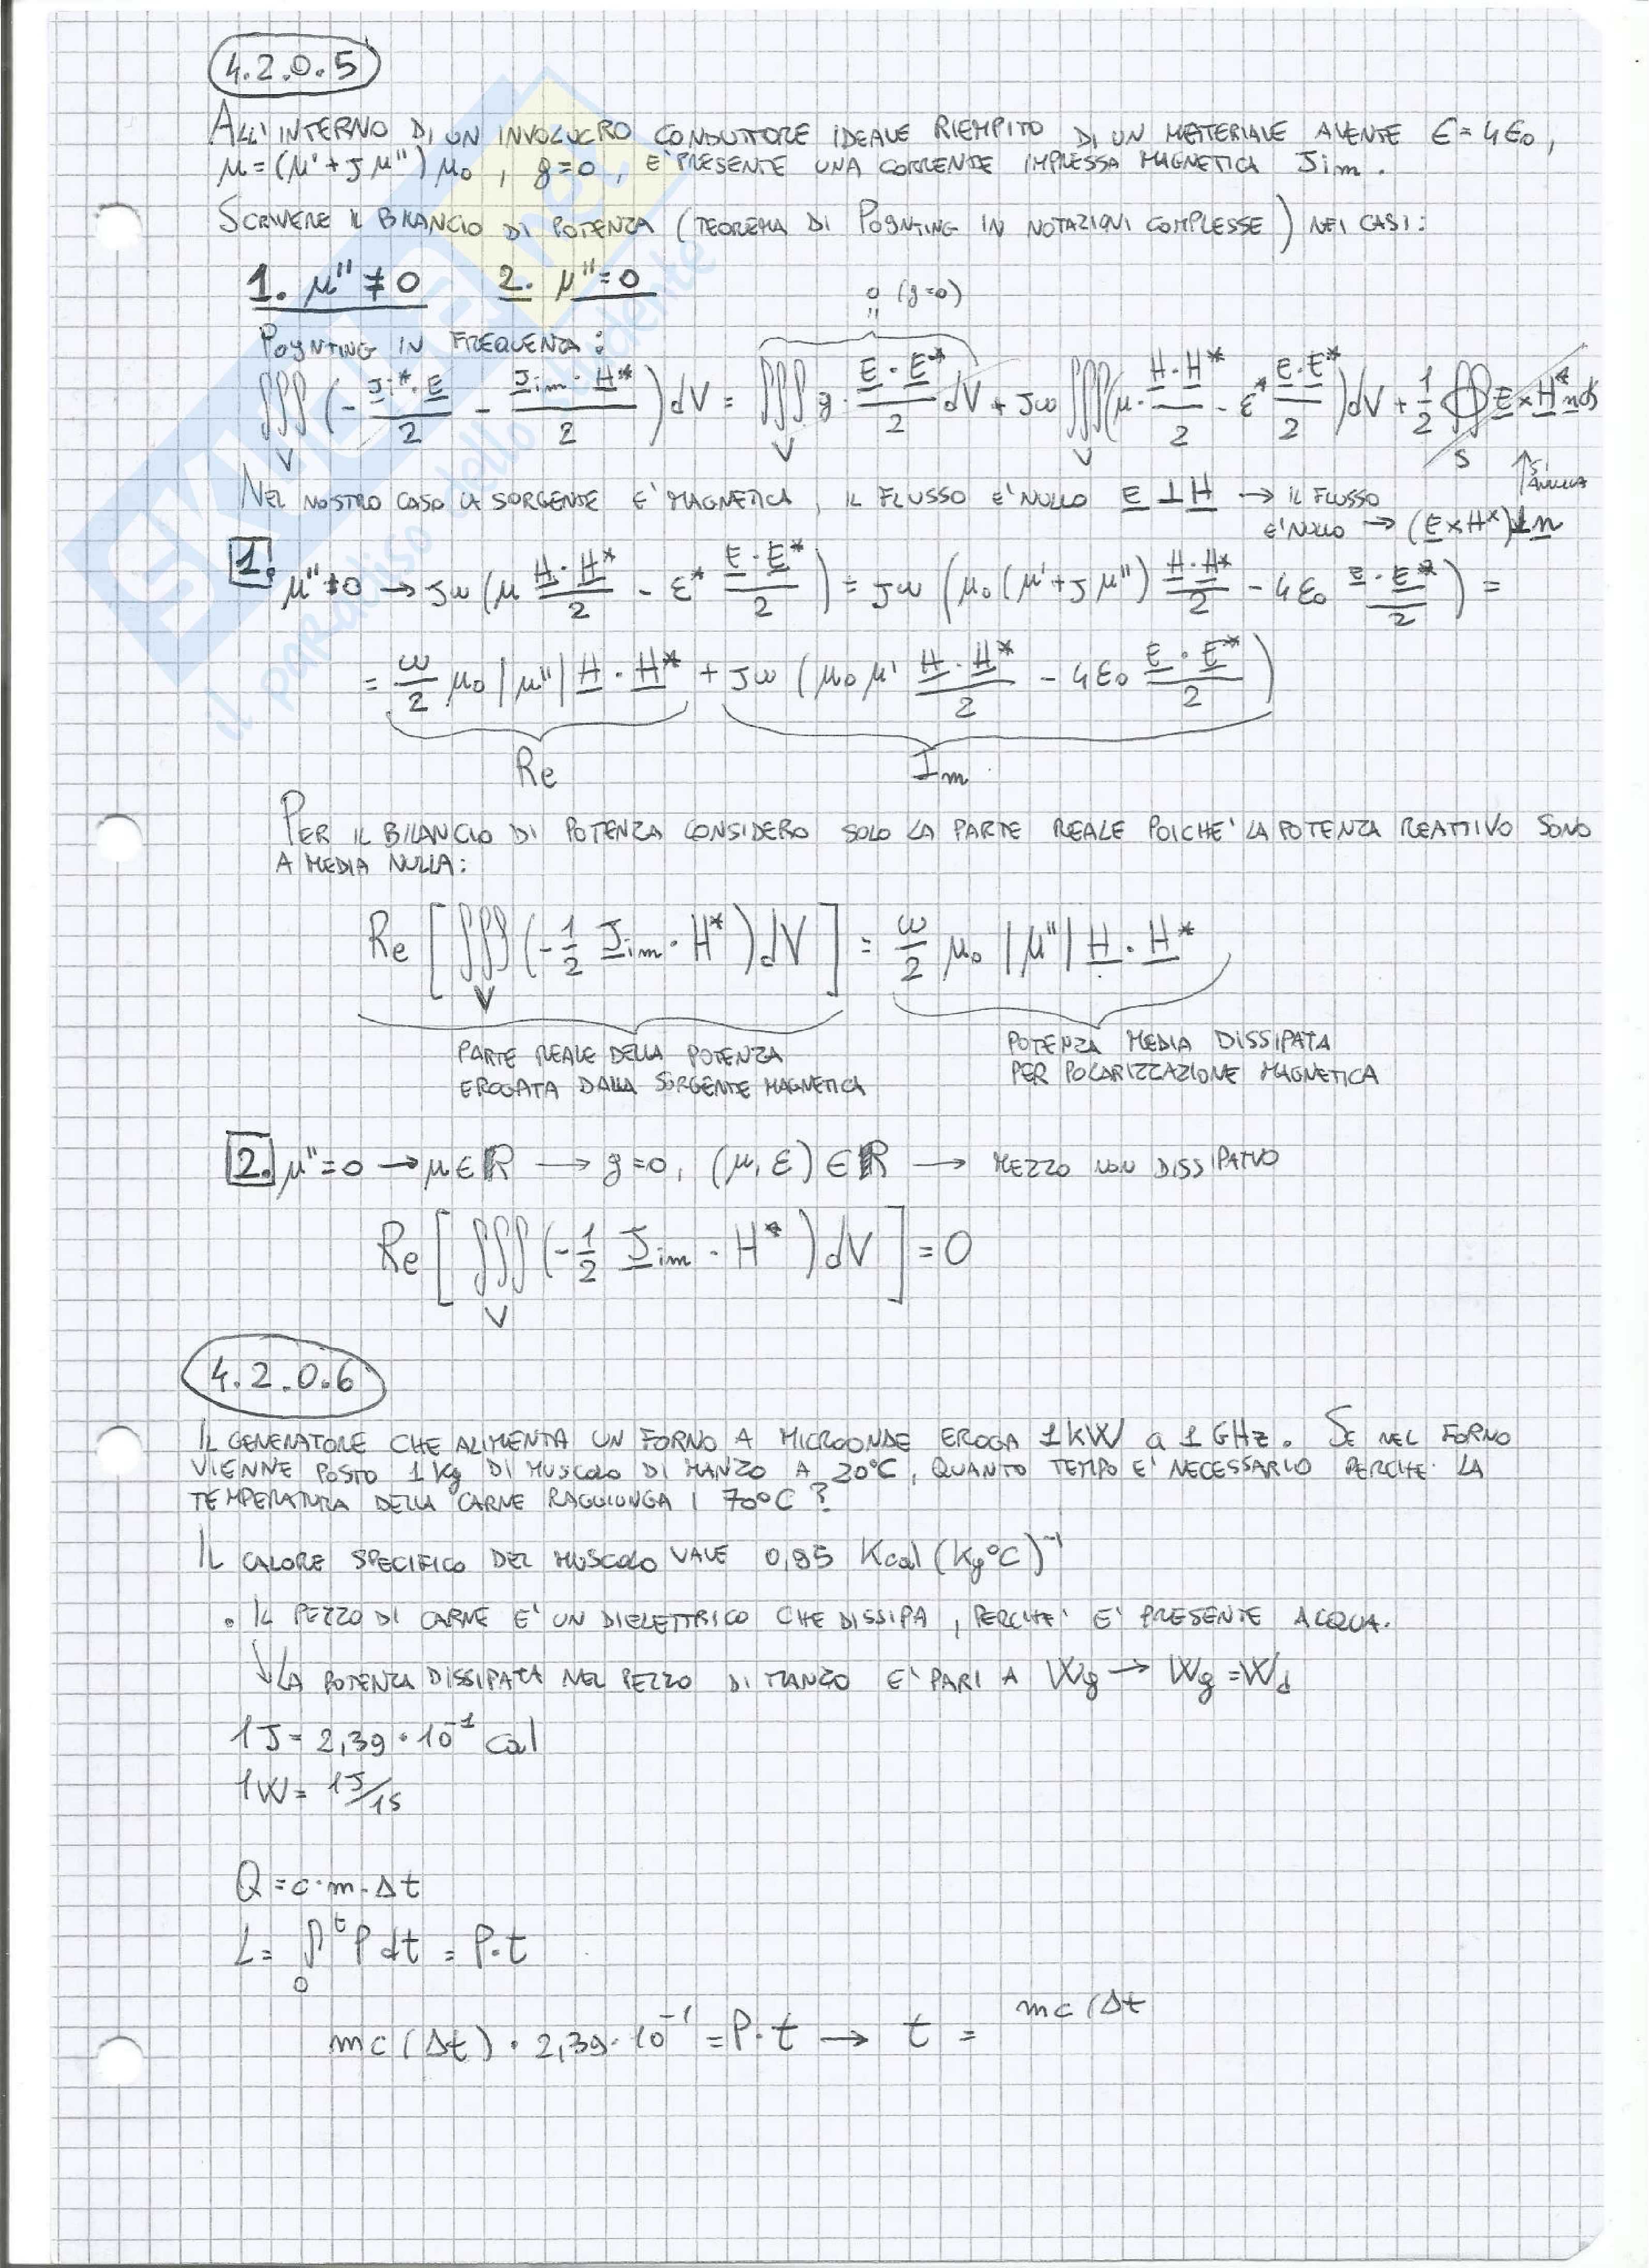 4.2.0.5
ALL'INTERNO DI UN INVOLUCRO CONDUTTORE IDEALE RIEMPITO DI UN MATERIALE AVENTE ε=4ε₀,
μ=(μ'+Jμ'')μ₀, g=0, E' PRESENTE UNA CORRENTE IMPRESSA MAGNETICA Jim.
SCRIVERE IL BILANCIO DI POTENZA (TEOREMA DI POYNTING IN NOTAZIONI COMPLESSE) NEI CASI:
1. μ''≠0 2. μ''=0
0 (g=0)
"
POYNTING IN FREQUENZA:
∭_V (- Ji*·E/2 - Jim·H*/2) dV = ∭_V g·E·E*/2 dV + Jω ∭_V (μ·H·H*/2 - ε* E·E*/2) dV + 1/2 ∯_S E×H* n ds
NEL NOSTRO CASO LA SORGENTE E' MAGNETICA, IL FLUSSO E' NULLO E⊥H → IL FLUSSO
E' NULLO → (E×H*)⊥n
↑ SI ANNULLA
1. μ''≠0 → Jω (μ H·H*/2 - ε* E·E*/2) = Jω (μ₀(μ'+Jμ'') H·H*/2 - 4ε₀ E·E*/2) =
= ω/2 μ₀ |μ''| H·H* + Jω (μ₀μ' H·H*/2 - 4ε₀ E·E*/2)
Re Im
PER IL BILANCIO DI POTENZA CONSIDERO SOLO LA PARTE REALE POICHE' LA POTENZA REATTIVO SONO
A MEDIA NULLA:
Re [∭_V (-1/2 Jim·H*) dV] = ω/2 μ₀ |μ''| H·H*
PARTE REALE DELLA POTENZA
EROGATA DALLA SORGENTE MAGNETICA
POTENZA MEDIA DISSIPATA
PER POLARIZZAZIONE MAGNETICA
2. μ''=0 → μ∈ℝ → g=0, (μ, ε)∈ℝ → MEZZO NON DISSIPATIVO
Re [∭_V (-1/2 Jim·H*) dV] = 0
4.2.0.6
IL GENERATORE CHE ALIMENTA UN FORNO A MICROONDE EROGA 1KW a 1 GHz. SE NEL FORNO
VIENNE POSTO 1 Kg DI MUSCOLO DI MANZO A 20°C, QUANTO TEMPO E' NECESSARIO PERCHE' LA
TEMPERATURA DELLA CARNE RAGGIUNGA I 70°C?
IL CALORE SPECIFICO DEL MUSCOLO VALE 0,85 Kcal (Kg°C)⁻¹
• IL PEZZO DI CARNE E' UN DIELETTRICO CHE DISSIPA, PERCHE' E' PRESENTE ACQUA.
↓ LA POTENZA DISSIPATA NEL PEZZO DI MANZO E' PARI A Wg → Wg = Wd
1J = 2,39·10⁻¹ cal
1W = 1J/1S
Q = c·m·Δt
L = ∫₀ᵗ P dt = P·t
mc(Δt)·2,39·10⁻¹ = P·t → t = mc(Δt
SKUOLA.net
il paradiso dello studente